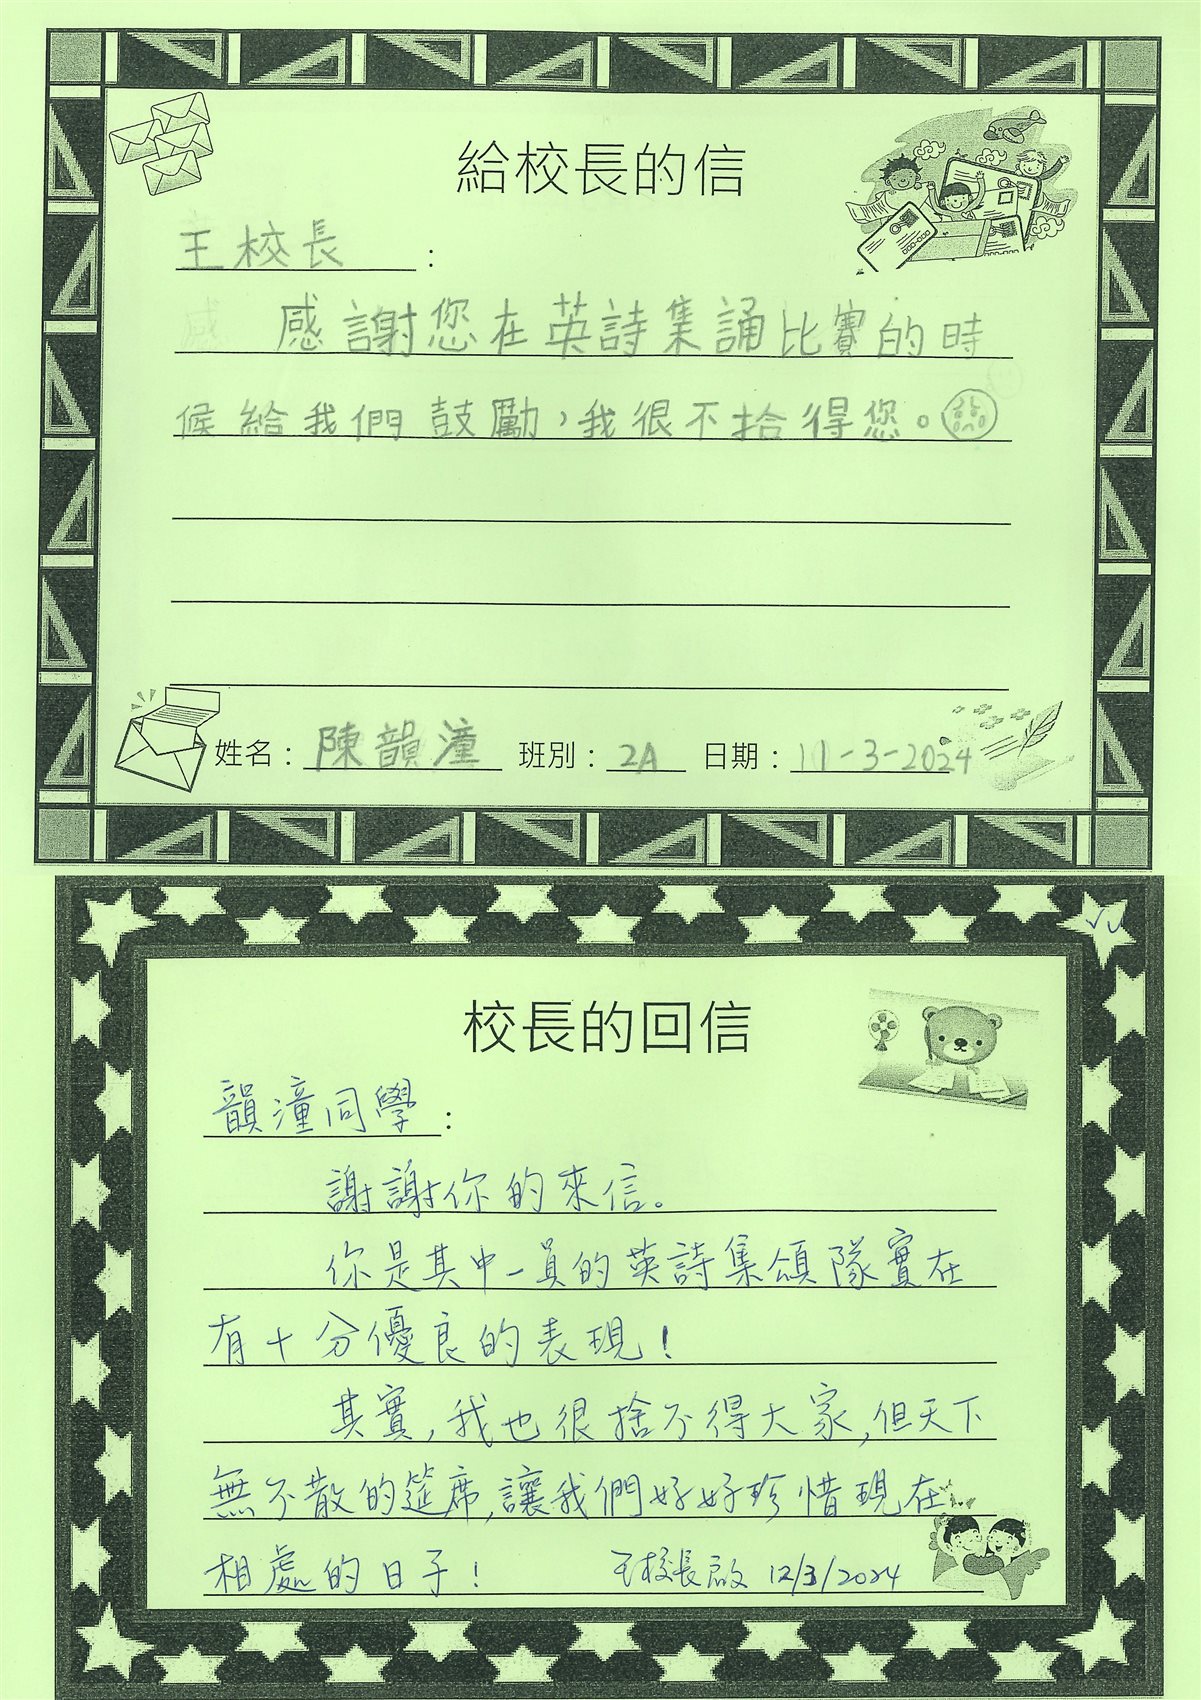 給校長的信
王校長：
感謝您在英詩集誦比賽的時
候給我們鼓勵，我很不拾得您。
姓名：陳韻潼 班別：2A 日期：11-3-2024
校長的回信
韻潼同學：
謝謝你的來信。
你是其中一員的英詩集頌隊實在
有十分優良的表現！
其實，我也很捨不得大家，但天下
無不散的筵席，讓我們好好珍惜現在
相處的日子！ 王校長啟 12/3/2024